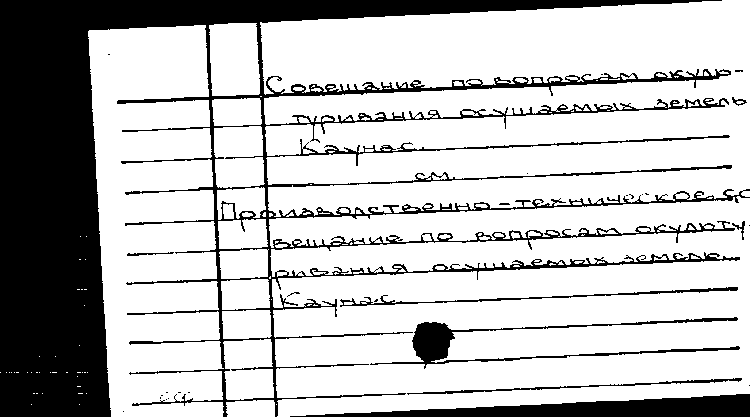 Совещание по вопросам окуль-
туривания осушаемых земель
Каунас.
см.
Производственно-техническое со
вещание по вопросам окульту-
ривания осушаемых земель.
Каунас.